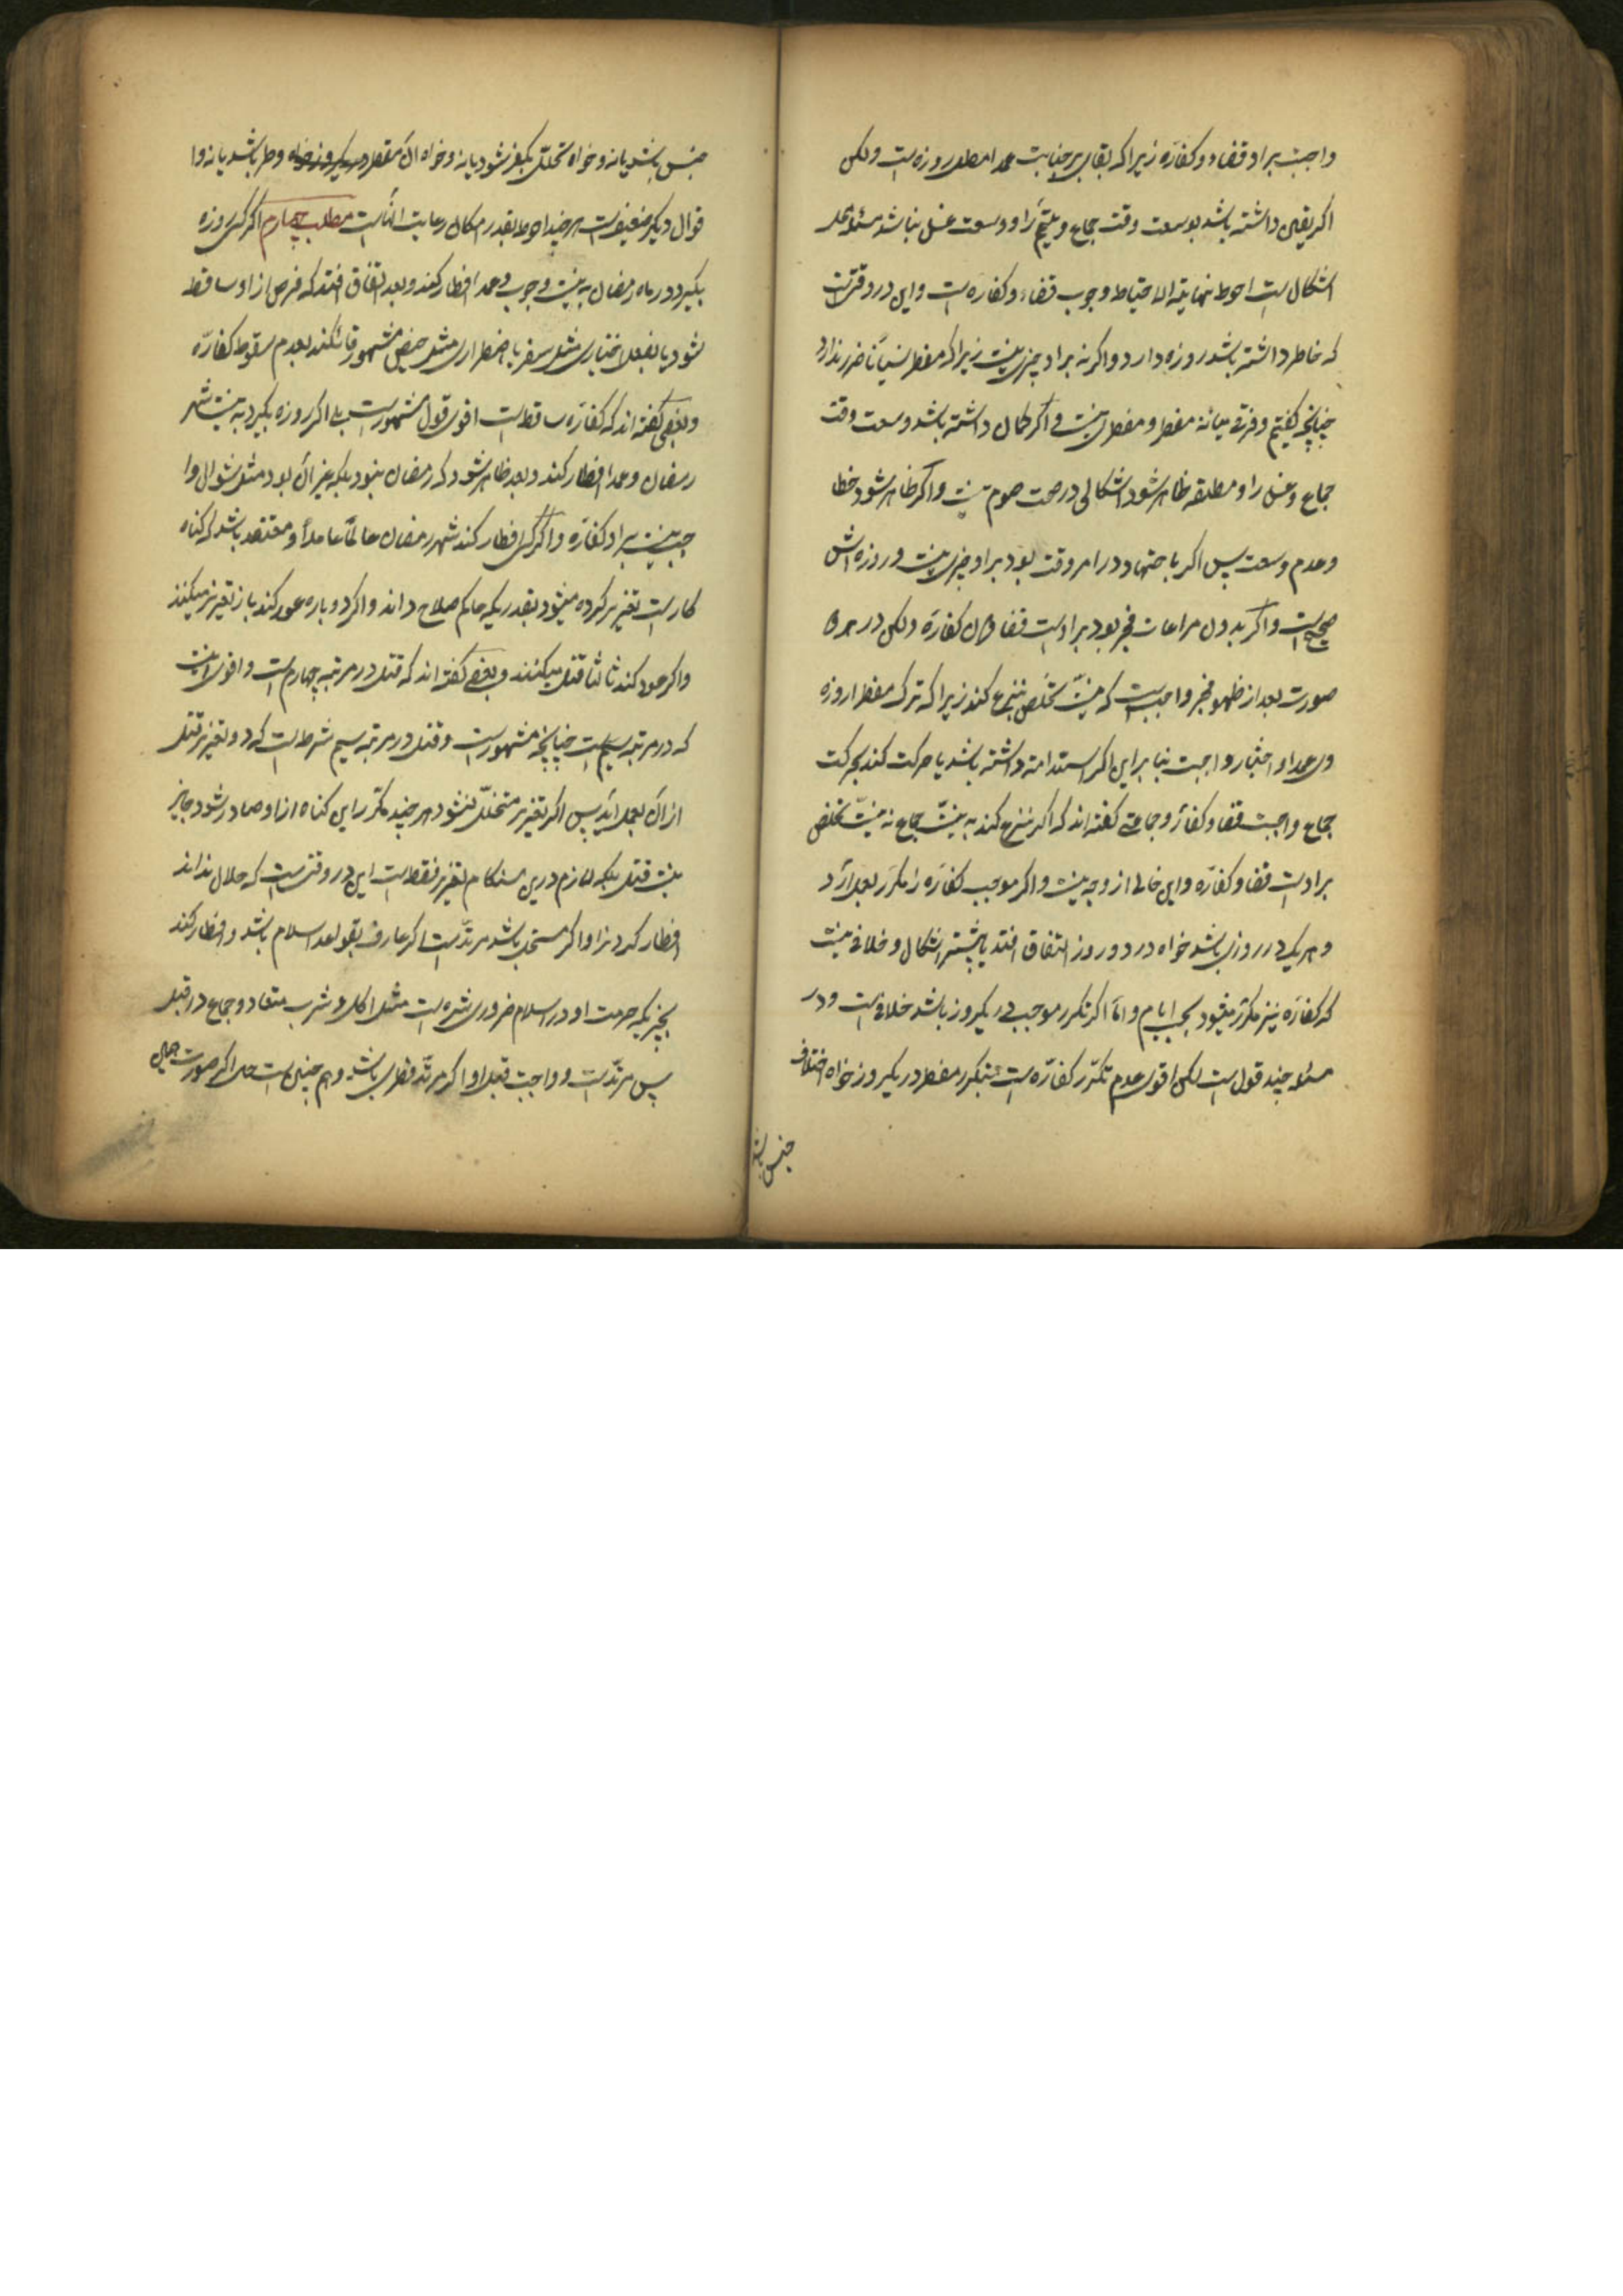 واجبست بر او قضاء و کفاره زیرا که بقای بر جنابت عمدا مبطل روزه است ولکن
اکر یقین داشته باشد بوسعت وقت جماع و تیمم را و وسعت غسل نباشد مسئله محل
اشکال است احوط نهایة الاحتیاط وجوب قضاء و کفاره است و این در وقتی است
که خاطر داشته باشد روزه دارد و اکر نه بر او چیزی نیست زیرا که مفطر نسیاناً ضرر ندارد
چنانچه کفتیم و فرقی میانه مفطر و مفطر نیست و اکر کمان داشته باشد وسعت وقت
جماع و غسل را و مطلقه ظاهر شود اشکالی در صحت صوم نیست و اکر ظاهر شود خطا
و عدم وسعت پس اکر با جتهاد در امر وقت بود بر او چیزی نیست و روزه اش
صحیح است و اکر بدون مراعات فجر بود بر اوست قضا بدون کفاره ولکن در هر
صورت بعد از ظهور فجر واجبست که بنیت تخلص نزع کند زیرا که ترک مفطر از روزه
عمدا و اختیار واجبست بنا بر این اکر استدامه داشته باشد یا حرکت کند بحرکت
جماع واجبست قضا و کفاره و جماعتی کفته اند که اکر نزع کند به نیت جماع نه نیت تخلص
بر اوست قضا و کفاره و این خالی از وجه نیست و اکر موجب کفاره را مکرر بعمل آرد
و هر یک در روزی باشد خواه در دو روز اتفاق افتد یا بیشتر اشکال و خلافی نیست
که کفاره نیز مکرر میشود بحسب ایام و اما اکر تکرر موجب در یکروز باشد خلافست و در
مسئله چند قول است لکن اقوی عدم تکرر کفاره است بتکرر مفطر در یکروز خواه اختلاف
جنس باشد
جنس باشد یا نه و خواه تخلل تکفیر شود یا نه و خواه آن مفطر در یکروز خواه وطی باشد یا نه و ا
قوال دیکر ضعیفست هر چند احوط بقدر امکان رعایت آنهاست مطلب چهارم اکر کسی روزه
بکیرد در ماه رمضان به نیت وجوب و عمدا افطار کند و بعد اتفاق افتد که فرض از او ساقط
شود یا بفعل اختیاری مثل سفر یا اضطراری مثل حیض مشهور قائلند بعدم سقوط کفاره
و بعضی کفته اند که کفاره ساقط است اقوی قول مشهور است بلی اکر روزه بکیرد به نیت شهر
رمضان و عمدا افطار کند و بعد ظاهر شود که رمضان نبود بلکه غیر آن بود مثل شوال وا
جب نیست بر او کفاره و اکر کسی افطار کند شهر رمضان عالماً عامداً و معتقد باشد که کناه
کار است تعزیر کرده میشود بقدریکه حاکم صلاح داند و اکر دوباره عود کند باز تعزیر میکنند
و اکر عود کند ثالثا قتل میکنند و بعضی کفته اند که قتل در مرتبه چهارم است و اقوی اینست
که در مرتبه سیم است چنانچه مشهور است و قتل در مرتبه سیم شرط است که دو تعزیر قبل
از آن بعمل آید پس اکر تعزیر متخلل نشود هر چند مکرر این کناه از او صادر شود جایز
نیست قتل بلکه لازم درین هنکام تعزیر فقط است این در وقتی است که حلال نداند
افطار کردنرا و اکر مستحل باشد مرتد است اکر عارف بقواعد اسلام باشد و افطار کند
بچیزیکه حرمت او در اسلام ضروری شده است مثل اکل و شرب معتاد و جماع در قبل
پس مرتد است و واجبست قتل او اکر مرتد فطری باشد و هم چنین است حال اکر صورت جماع